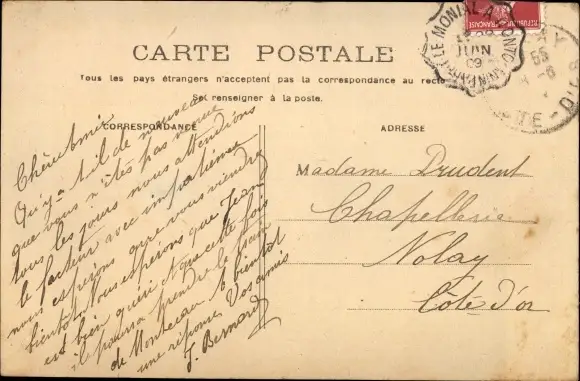 RÉPUBLIQUE FRANÇAISE
LE MONIAL A
JUIN
09
CARTE POSTALE
Tous les pays étrangers n'acceptent pas la correspondance au recto
Se renseigner à la poste.
CORRESPONDANCE
ADRESSE
Chère amie
Qu'y-a-t-il de nouveau
que vous n'êtes pas venue
tous les jours nous attendions
le facteur avec impatience
nous espérons que vous viendrez
bientôt. Nous espérons que Jean
est bien guéri et que cette fois
il pourra prendre le train
de Montceau. A bientôt
une réponse Vos amis
J. Bernard
Madame Prudent
Chapellerie
Nolay
Côte d'or